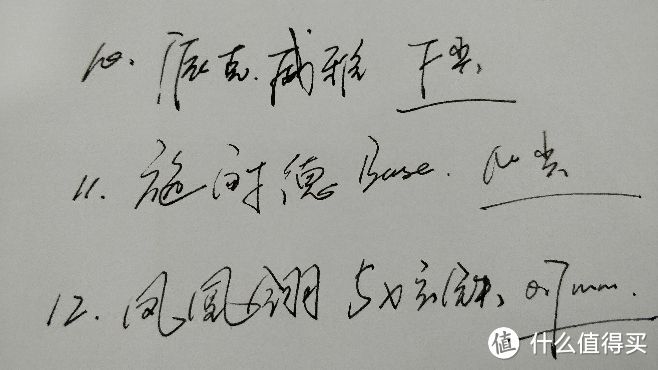 10. 派克.威雅 F尖
11. 施耐德 Base. M尖
12. 凤凰 0.7mm.
值 什么值得买